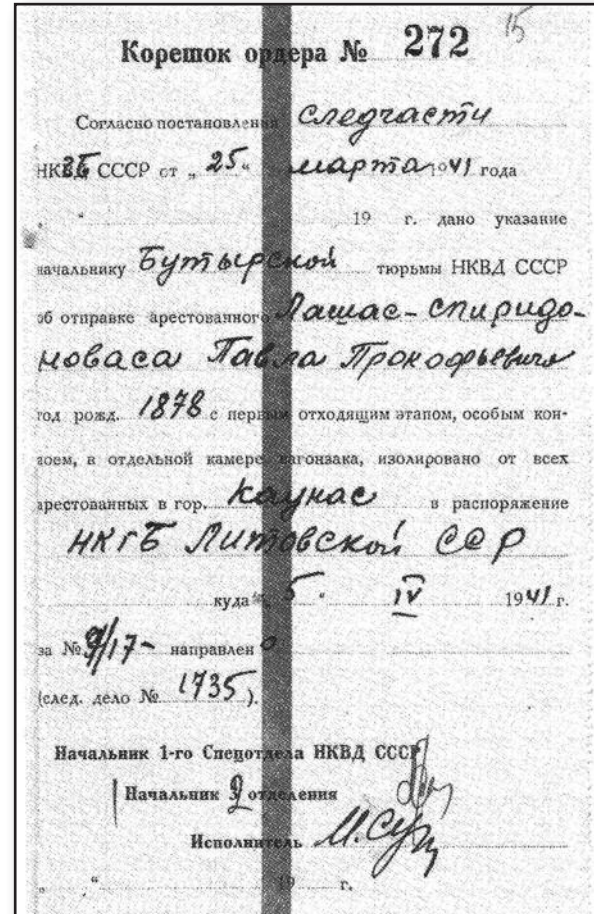 15
Корешок ордера № 272
Согласно постановления следчасти
НКГБ СССР от „25“ марта 1941 года
„ “ 19 г. дано указание
начальнику Бутырской тюрьмы НКВД СССР
об отправке арестованного Лашас-Спиридо-
новаса Павла Прокофьевича
год рожд. 1878 с первым отходящим этапом, особым кон-
воем, в отдельной камере вагонзака, изолировано от всех
арестованных в гор. Каунас в распоряжение
НКГБ Литовской ССР
куда „5“ IV 1941 г.
за № 9/17- направлено
(след. дело № 1735).
Начальник 1-го Спецотдела НКВД СССР
Начальник 9 отделения
Исполнитель
„ “ 19 г.